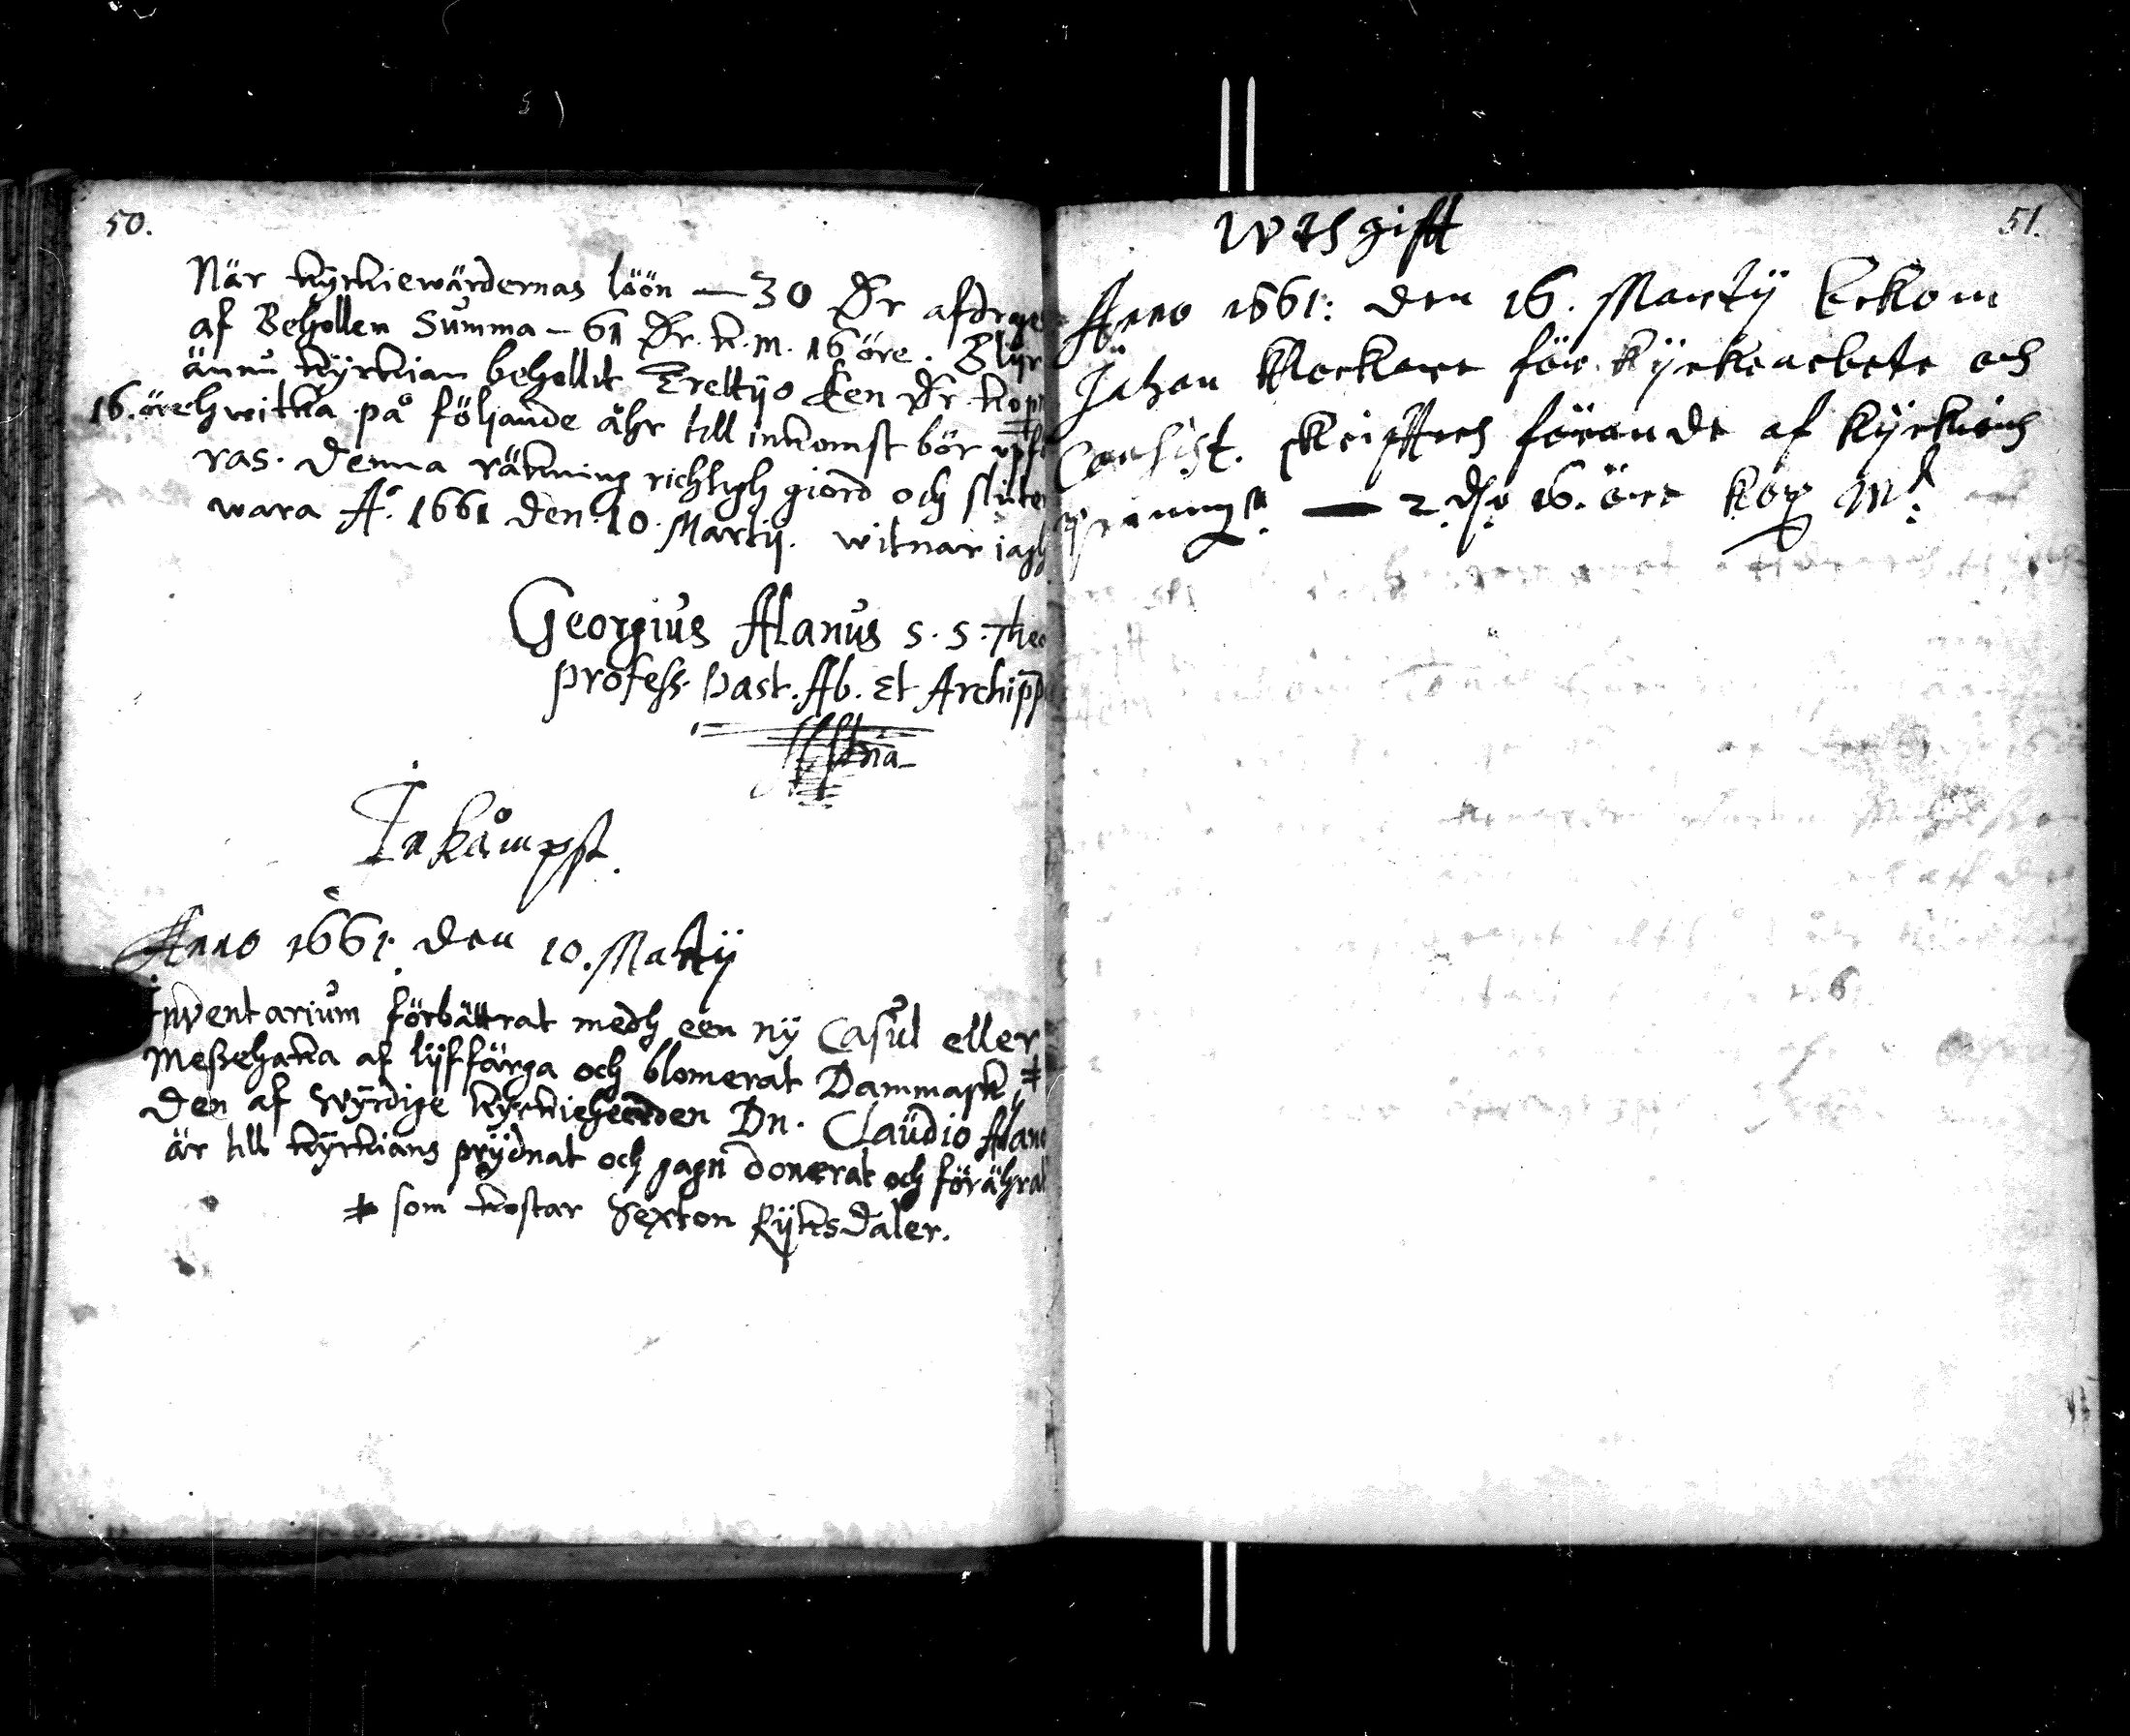 50.
När kyrkiewärdernas löön — 30 Dr afdrge
af Behollen Summa — 61 Dr. k.m. 16 öre. Blijr
ännu kyrkian behollit Trettijo een Dr. kopr
16. öre hwitka på följande åhr till inkomst bör upf
ras. Denna räkning richtigh giord och sluten
wara Ao. 1661 den 10. Martij. witnar iagh
Georgius Alanus s. s. Theo
profess. Past. Ab. Et Archipp
Inkåmpst.
Anno 1661. den 10. Martij
Inventarium förbättrat medh een ny Casul eller
Messehaka af lijffärga och blomerat Dammask #
den af Wyrdige kyrkieheerden Dn. Claudio Alano
är till kyrkians prydnat och gagn donerat och förährat
# som kostar Sexton Rijksdaler.
51.
Wthgifft
Anno 1661: den 16. Martij bekom
Johan Klockare för kyrkearbete och
Consist. skrifftens förande af kyrkiens
— 2. dlr 16. öre kop Mt: